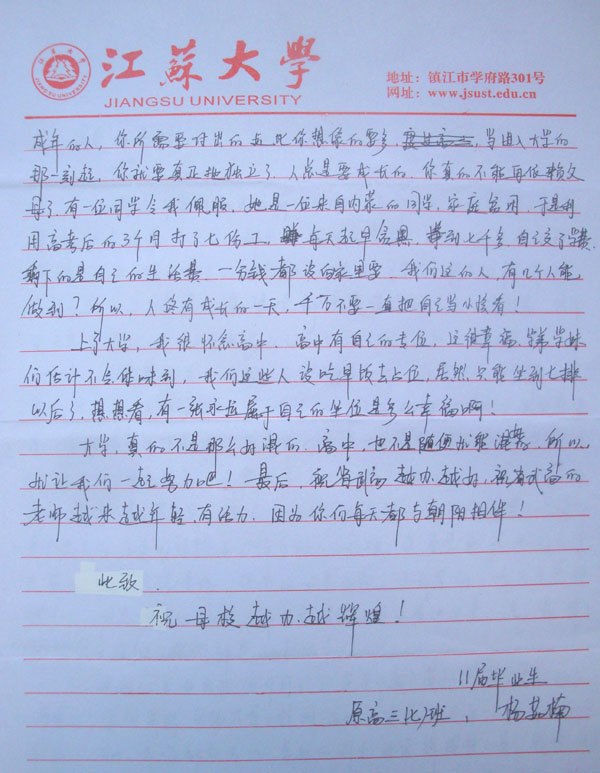 江蘇大學
JIANGSU UNIVERSITY
地址：镇江市学府路301号
网址：www.jsust.edu.cn
成年的人，你所需要付出的与比你想像的要多，当进入大学的
那一刻起，你就要真正地独立了，人总是要成长的，你真的不能再依赖父
母了，有一位同学令我佩服，她是一位来自内蒙的同学，家庭贫困，于是利
用高考后的3个月打了七份工，每天起早贪黑，赚到七千多自己交了学费，
剩下的是自己的生活费，一分钱都没向家里要，我们这的人，有几个人能
做到？所以，人终有成长的一天，千万不要一直把自己当小孩看！
上了大学，我很怀念高中，高中有自己的专位，这很幸福，学弟学妹
们估计不会体味到，我们这些人没吃早饭去占位，居然只能坐到七排
以后了，想想看，有一张永远属于自己的坐位是多么幸福啊！
大学，真的不是那么好混的，高中，也不是随便就能混，所以
就让我们一起努力吧！最后，祝省武高越办越好，祝省武高的
老师越来越年轻，有活力，因为你们每天都与朝阳相伴！
此致
祝母校越办越辉煌！
11届毕业生
原高三(16)班，杨楠